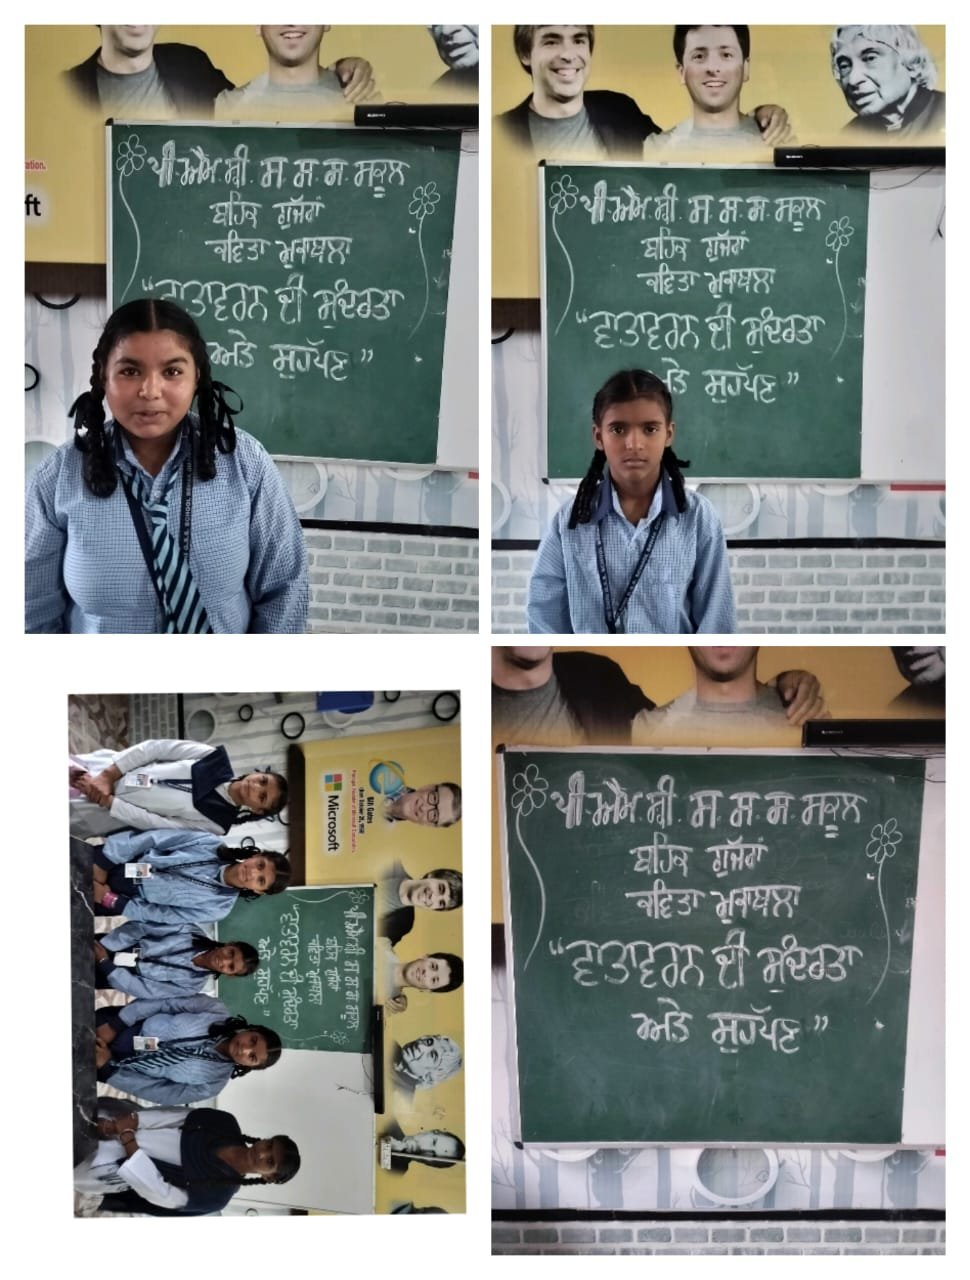 ration.
ft
ਪੀ.ਐਮ.ਸ਼੍ਰੀ. ਸ. ਸ. ਸ. ਸਕੂਲ
ਬਹਿਕ ਗੁੱਜਰਾਂ
ਕਵਿਤਾ ਮੁਕਾਬਲਾ
"ਵਾਤਾਵਰਨ ਦੀ ਸੁੰਦਰਤਾ
ਅਤੇ ਸੁਹੱਪਣ"
ਪੀ.ਐਮ.ਸ਼੍ਰੀ. ਸ. ਸ. ਸ. ਸਕੂਲ
ਬਹਿਕ ਗੁੱਜਰਾਂ
ਕਵਿਤਾ ਮੁਕਾਬਲਾ
"ਵਾਤਾਵਰਨ ਦੀ ਸੁੰਦਰਤਾ
ਅਤੇ ਸੁਹੱਪਣ"
Bill Gates
Microsoft
ਪੀ.ਐਮ.ਸ਼੍ਰੀ. ਸ. ਸ. ਸ. ਸਕੂਲ
ਬਹਿਕ ਗੁੱਜਰਾਂ
ਕਵਿਤਾ ਮੁਕਾਬਲਾ
"ਵਾਤਾਵਰਨ ਦੀ ਸੁੰਦਰਤਾ
ਅਤੇ ਸੁਹੱਪਣ"
ਪੀ.ਐਮ.ਸ਼੍ਰੀ. ਸ. ਸ. ਸ. ਸਕੂਲ
ਬਹਿਕ ਗੁੱਜਰਾਂ
ਕਵਿਤਾ ਮੁਕਾਬਲਾ
"ਵਾਤਾਵਰਨ ਦੀ ਸੁੰਦਰਤਾ
ਅਤੇ ਸੁਹੱਪਣ"